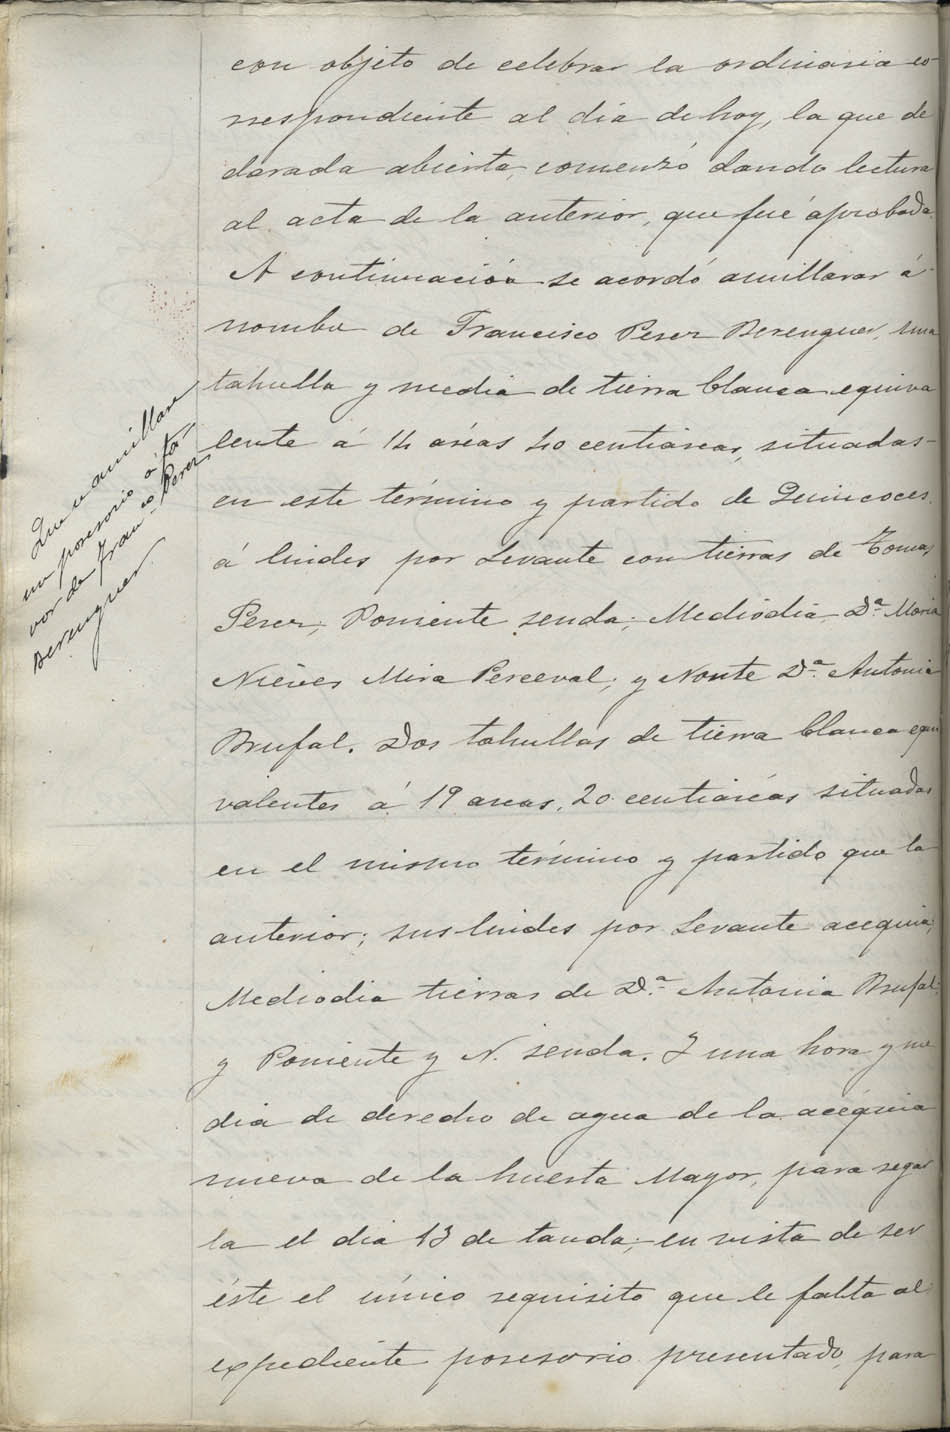 con objeto de celebrar la ordinaria co-
rrespondiente al día de hoy, la que de
clarada abierta, comenzó dando lectura
al acta de la anterior, que fué aprobada.
A continuación se acordó amillarar á
nombre de Francisco Perez Berenguer, una
tahulla y media de tierra blanca equiva
lente á 14 aréas 40 centiareas, situadas-
en este término y partido de Quincoces.
á lindes por Levante con tierras de Tomas
Perez; Poniente senda; Mediodía Dª Maria
Nieves Mira Perceval; y Norte Dª Antonia
Brufal. Dos tahullas de tierra blanca equi
valentes á 19 areas, 20 centiáreas situadas
en el mismo término y partido que la
anterior; sus lindes por Levante acequia;
Mediodia tierras de Dª Antonia Brufal;
y Poniente y N. senda. Y una hora y me
dia de derecho de agua de la acéquia
nueva de la huerta Mayor, para regar
la el dia 13 de tanda; en vista de ser
éste el único requisito que le falta al
expediente posesorio presentado, para
Que se amillare
un posesorio á fa-
vor de Franco Perez
Berenguer